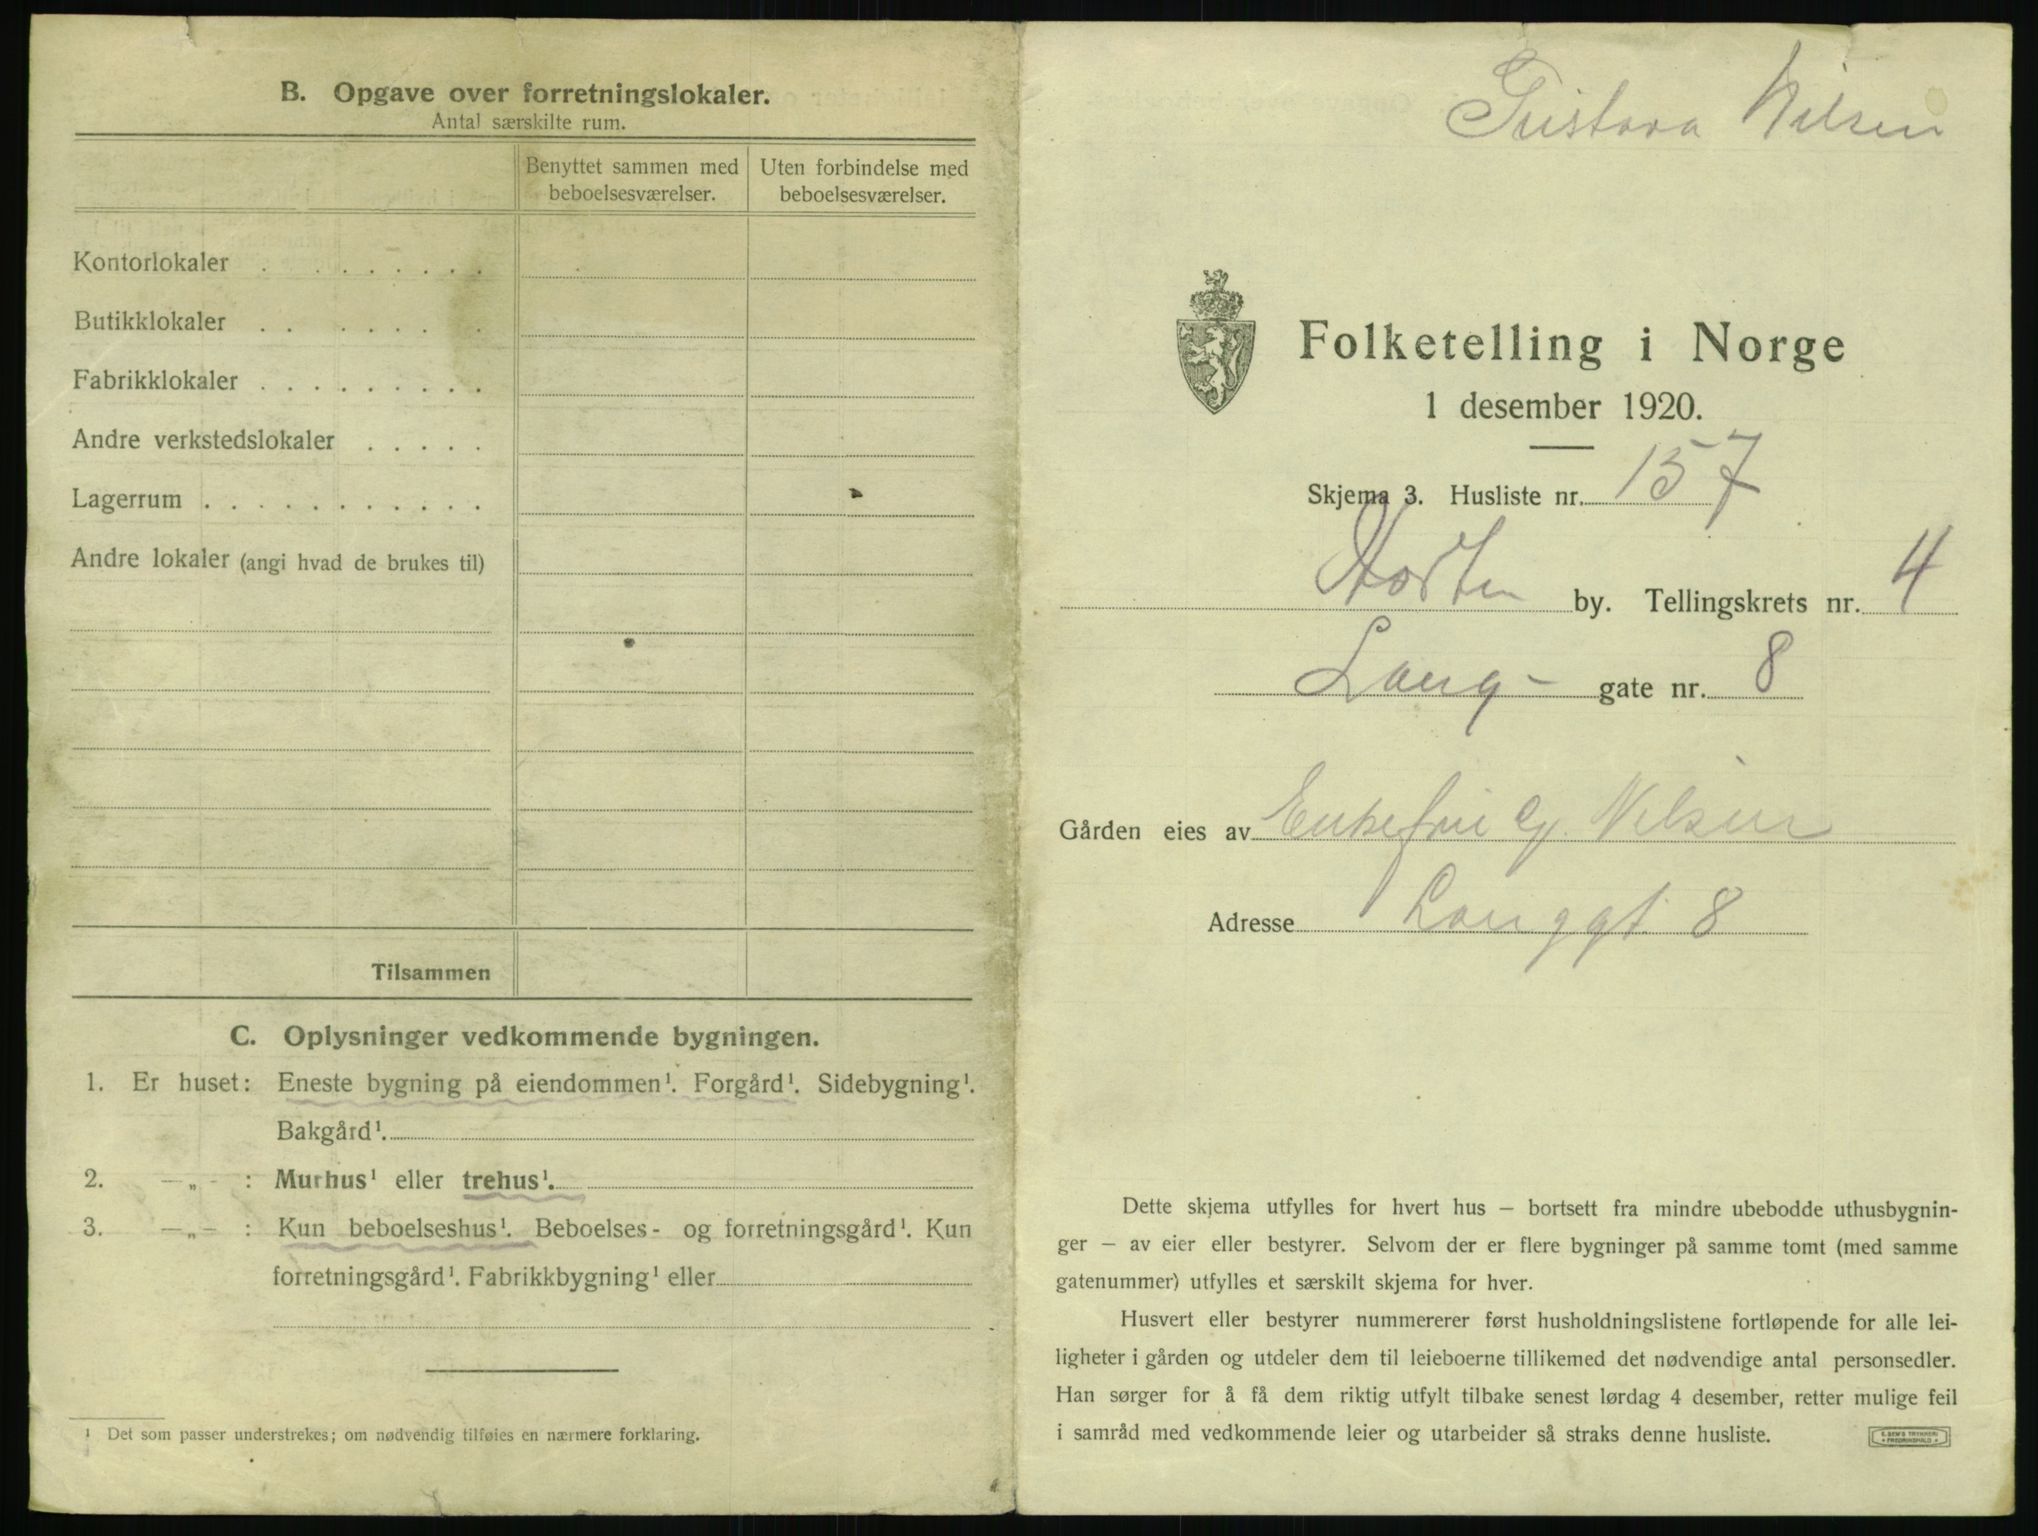 B. Opgave over forretningslokaler.
Antal særskilte rum.
Benyttet sammen med beboelsesværelser.
Uten forbindelse med beboelsesværelser.
Kontorlokaler . . . . . . . .
Butikklokaler . . . . . . .
Fabrikklokaler . . . . . . . . .
Andre verkstedslokaler . . . . .
Lagerrum . . . . . . . . . . .
Andre lokaler (angi hvad de brukes til)
Tilsammen
C. Oplysninger vedkommende bygningen.
1. Er huset: Eneste bygning på eiendommen¹. Forgård¹. Sidebygning¹.
Bakgård¹.
2. —„— : Murhus¹ eller trehus¹.
3. —„— : Kun beboelseshus¹. Beboelses- og forretningsgård¹. Kun
forretningsgård¹. Fabrikkbygning¹ eller
¹ Det som passer understrekes; om nødvendig tilføies en nærmere forklaring.
Gustava Nilsen
Folketelling i Norge
1 desember 1920.
Skjema 3. Husliste nr. 157
Horten by. Tellingskrets nr. 4
Lang- gate nr. 8
Gården eies av Enkefru G. Nilsen
Adresse Langgt. 8
Dette skjema utfylles for hvert hus – bortsett fra mindre ubebodde uthusbygnin-
ger – av eier eller bestyrer. Selvom der er flere bygninger på samme tomt (med samme
gatenummer) utfylles et særskilt skjema for hver.
Husvert eller bestyrer nummererer først husholdningslistene fortløpende for alle lei-
ligheter i gården og utdeler dem til leieboerne tillikemed det nødvendige antal personsedler.
Han sørger for å få dem riktig utfylt tilbake senest lørdag 4 desember, retter mulige feil
i samråd med vedkommende leier og utarbeider så straks denne husliste.
E. SEM'S TRYKKERI
• FREDRIKSHALD •